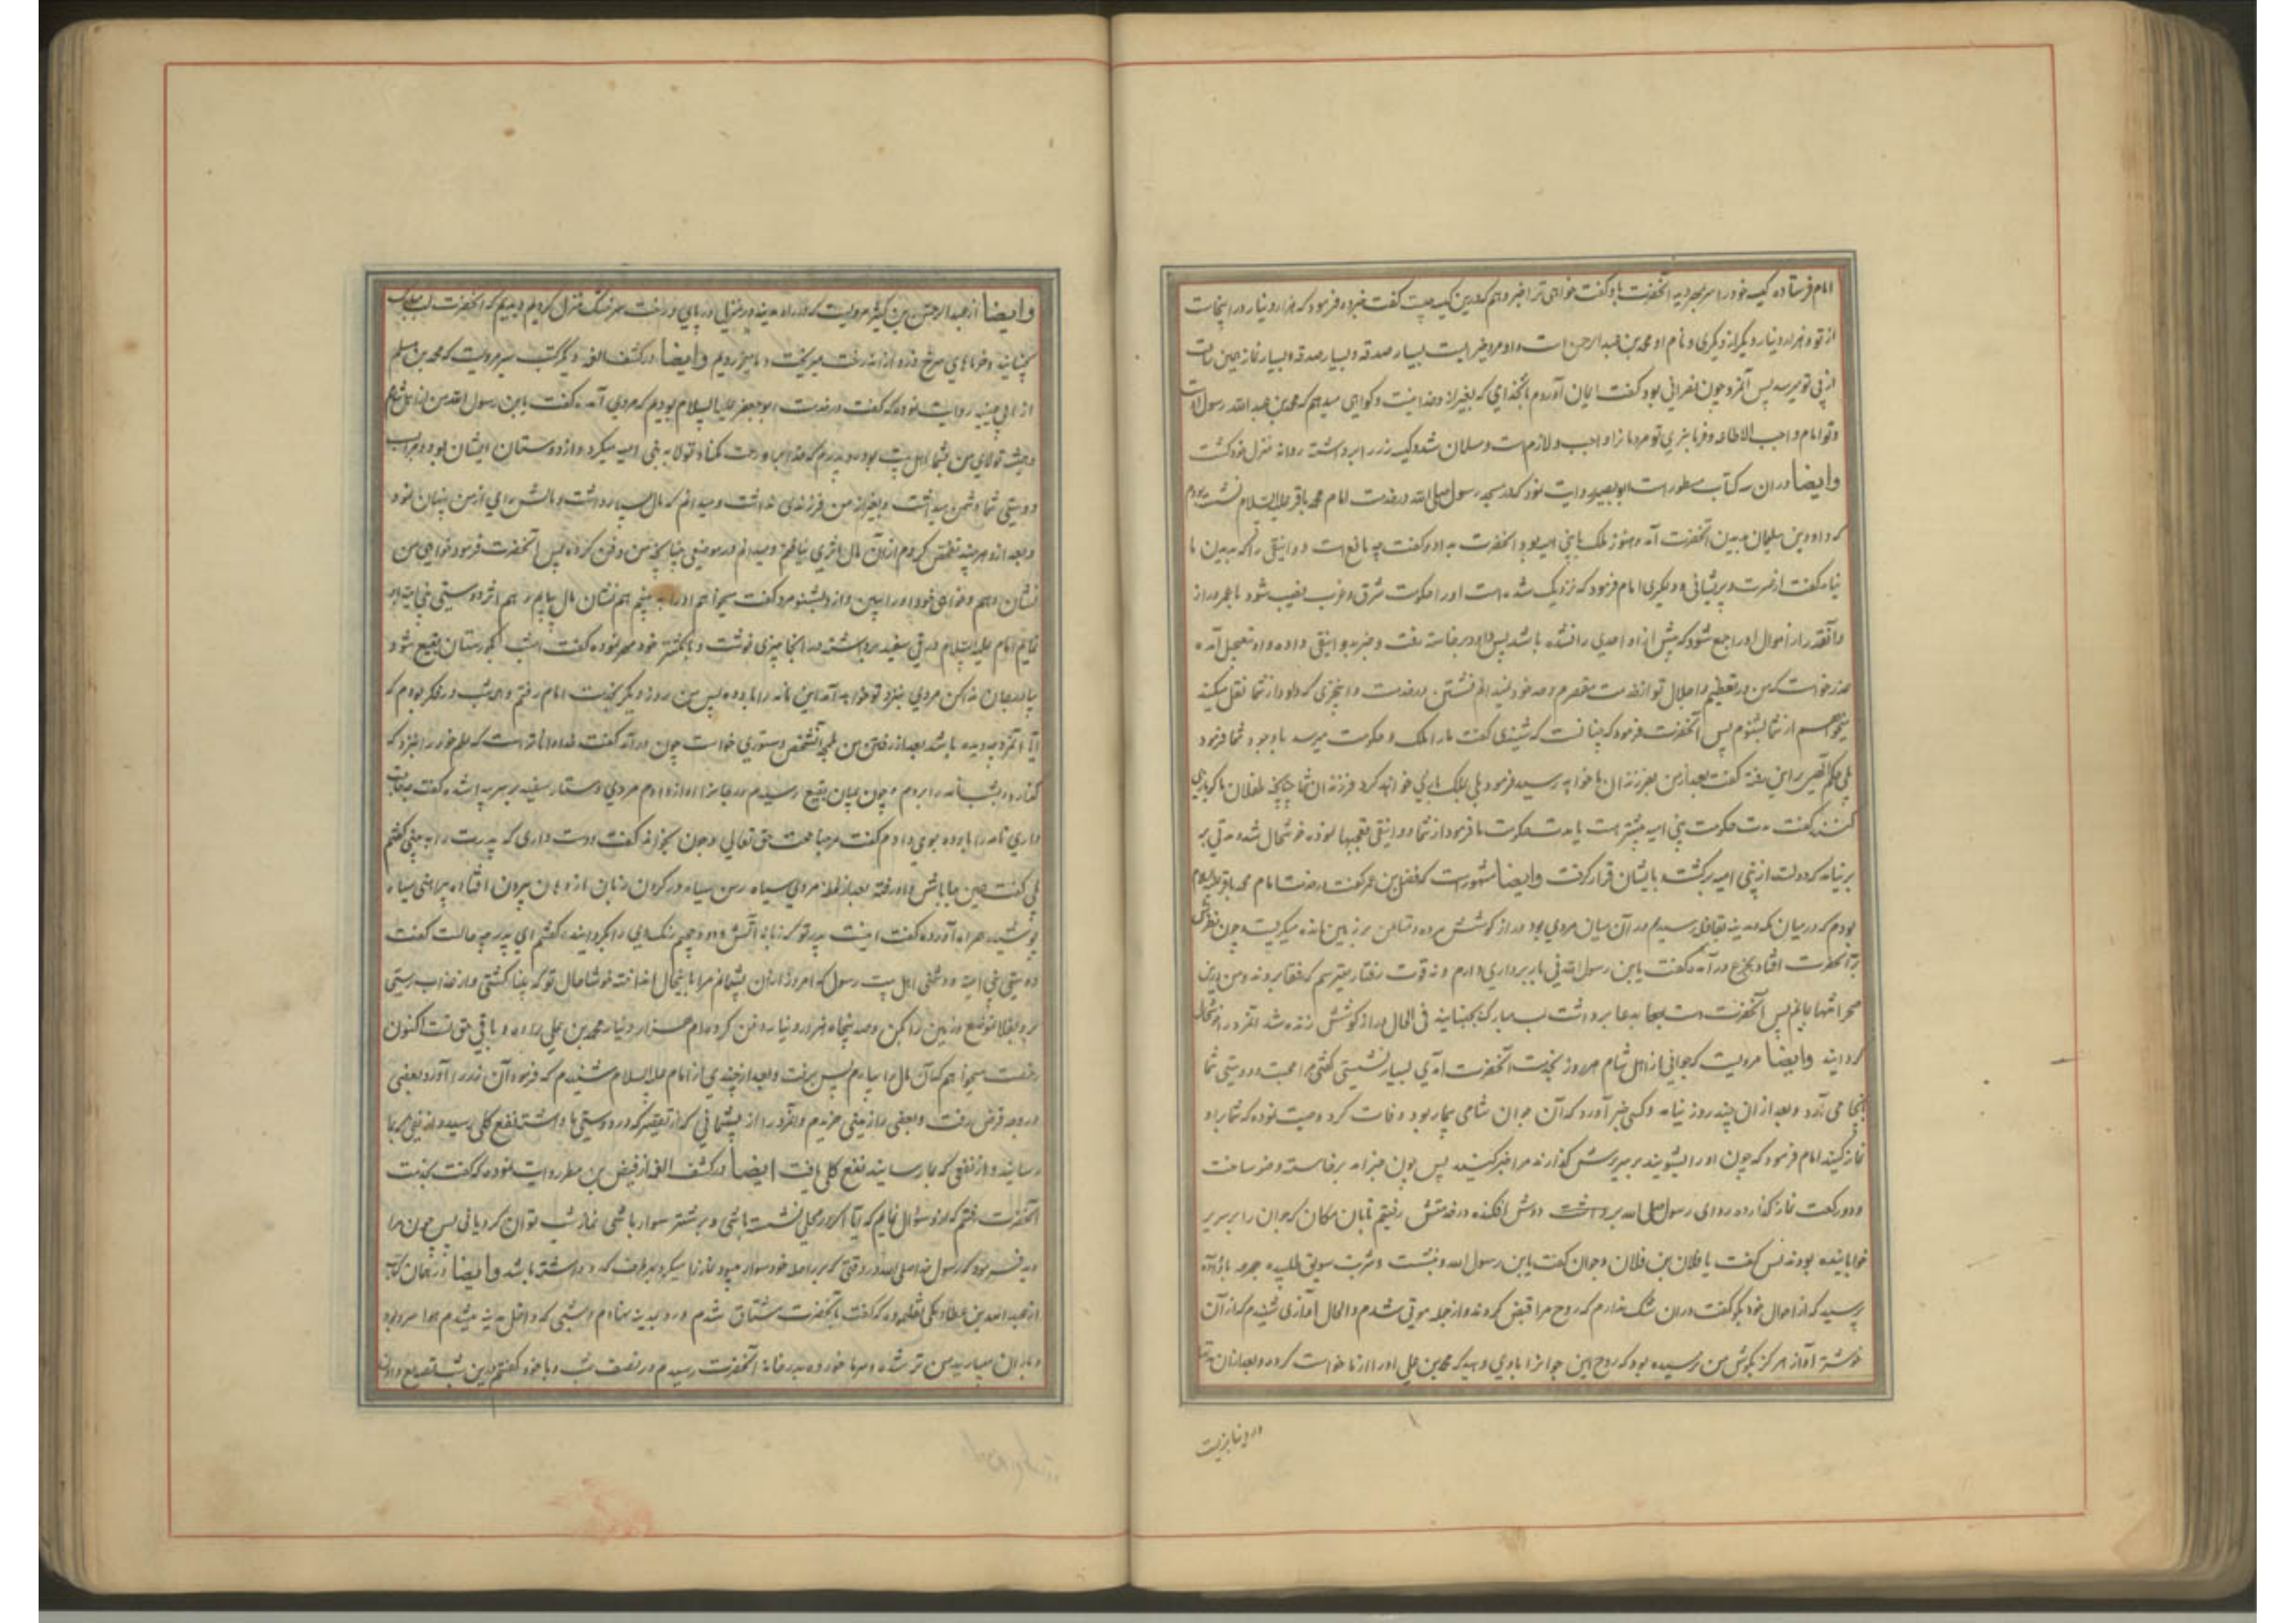 امام فرستاده کیسه خود را سر بمهر دید آنحضرت باو گفت خواهی ترا خبر دهم که درین کیسه چیست گفت خبر ده فرمود که هزار دینار در اینجاست
از تو و هزار دینار دیگر از دیگری و نام او محمد بن عبد الرحمن است و او مرد خیر است بسیار صدقه و بسیار نماز همین زمان
از پی تو میرسد پس آنمرد چون نصرانی بود گفت ایمان آوردم بآنخدای که بغیر از او خدا نیست و گواهی میدهم که محمد بن عبد الله رسول اوست
و تو امام واجب الاطاعه و فرمانبری تو مردمانرا واجب و لازم است و مسلمان شد و کیسه زر را برداشته روانه منزل خود گشت
وایضا در ان کتاب مسطور است ابو بصیر روایت نمود که در مسجد رسول صلی الله در خدمت امام محمد باقر علیه السلام نشسته بودم
که داود بن سلیمان بدیدن آنحضرت آمد و هنوز ملک با بنی امیه بود آنحضرت به او گفت چه مانع است دوانیقی را که بدیدن ما
نیامد گفت از ضرورت و پریشانی و دیگری امام فرمود که نزدیک شده است او را حکومت شرق و غرب نصیب شود با عمر دراز
و آنقدر از اموال او را جمع شود که پیش از او احدی را نشده باشد پس داود برخاسته رفت و خبر بدوانیقی داده و او بتعجیل آمده
عذر خواست که من در تعظیم و اجلال تو از خدمت مقصرم و حد خود نمیدانم نشستن در خدمت و این چیزی که داود از شما نقل میکند
میخواهم از شما بشنوم پس آنحضرت فرمود که چنانست که شنیدی گفت ما را ملک و حکومت میرسد با وجود شما فرمود
بلی حکم تقدیر براین رفته گفت بعد از من بفرزندان ما خواهد رسید فرمود بلی بملک بازی خواهند کرد فرزندان شما چنانچه طفلان با گوی بازی
کنند گفت مدت حکومت بنی امیه بیشتر است یا مدت حکومت ما فرمود از شما دوانیقی تعجبها نموده خوشحال شده مدتی بر
بر نیامد که دولت از بنی امیه برگشته بایشان قرار گرفت وایضا مشهور است که فضل بن عمر گفت در خدمت امام محمد باقر علیه السلام
بودم که در میان مکه و مدینه بقافله رسیدم در آن میان مردی بود دراز گوشش مرده و متاعش بر زمین مانده میگریست چون نظرش
بر آنحضرت افتاد بجزع درآمده گفت یابن رسول الله نی باربرداری دارم و نه قوت رفتار میترسم که رفقا بروند و من درین
صحرا تنها بمانم پس آنحضرت دست بدعا برداشت لب مبارک بجنبانید فی الحال دراز گوشش زنده شد آنمرد را خوشحال
گردانید وایضا مرویست که جوانی از اهل شام هر روز بخدمت آنحضرت آمدی بسیار نشستی گفتی مرا محبت و دوستی شما
اینجا می آرد و بعد از ان چند روز نیامد و کسی خبر آورد که آن جوان شامی بیمار بود وفات کرد وصیت نموده که شما بر او
نماز کنید امام فرمود که چون او را بشویند بر سریرش گذارند مرا خبر کنید پس چون خبر آمد برخاسته وضو ساخت
و دو رکعت نماز گذارده ردای رسول صلی الله برداشته دوش افکنده در خدمتش رفتیم تا بان مکان که جوان را بر سریر
خوابانیده بودند پس گفت یا فلان بن فلان و جوان گفت یابن رسول الله و بنشست و شربت سویق طلبیده جرعه باو داده
پرسید که از احوال خود بگو گفت دران شک ندارم که روح مرا قبض کردند و از جمله موتی شدم والحال آوازی شنیدم که از آن
خوشتر آواز هرگز بگوش من نرسیده بود که روح این جوانرا باو دهید که محمد بن علی او را از ما درخواست کرده و بعد از ان
در دنیا بزیست
وایضا از عبد الرحمن بن کثیر مرویست که در راه مدینه در منزلی در پای درخت خشک منزل کردیم دیدیم که آنحضرت لب مبارک
بجنبانید و خرماهای سرخ و زرد از آن درخت میریخت و ما میخوردیم وایضا در کشف الغمه و دیگر کتب سیر مرویست که محمد بن مسلم
از ابی عیینه روایت نموده که گفت در خدمت ابو جعفر علیه السلام بودیم که مردی آمده گفت یابن رسول الله من از اهل شامم
و همیشه تولای من بشما اهل بیت بود و پدرم که خدا او را رحمت کناد تولا به بنی امیه میکرد و از دوستان ایشان بود و مرا به
دوستی شما دشمن میداشت و بغیر از من فرزندی نداشت و میدانم که مال بسیار داشت و مالش را می از من پنهان نمود
و بعد ازو هر چند تفحص کردم از آن مال اثری نیافتم و میدانم در موضعی دفن کرده پس آنحضرت فرمود خواهی من
نشان دهم و خواهی خود او را ببین و ازو بشنو مرد گفت میخواهم او را به بینم هم نشان مال بیابم و هم اثر دوستی بنی امیه
نمایم امام علیه السلام ورقی سفید برداشته در انجا چیزی نوشت و بانگشتر خود مهر نموده گفت امشب بگورستان بقیع شو و
یا درجان ندا کن مردی بنزد تو خواهد آمد این نامه را باو ده پس من روز دیگر بخدمت امام رفتم و همه شب در فکر بودم که
آیا آنمرد چه دیده باشد بعد از رفتن من آنشخص دستوری خواست چون درآمد گفت خدا داناتر است که علم خود را بنزد که
گذارد دیشب نامه را بردم و چون بمیان بقیع رسیدم درجانرا آواز دادم مردی دستار سفید بر سر پیدا شد گفت چه حاجت
داری نامه را باو داده بوی دادم گفت مرحبا بحجت حق تعالی و چون بخواند گفت دوست داری که پدرت را به بینی گفتم
بلی گفت همین جا باش و او رفته بعد از لحظه مردی سیاه رسن سیاه در گردن زبان از دهان بیرون افتاده پیراهنی سیاه
پوشیده همراه آورده گفت اینست پدر تو که زبانه آتش و دود جحیم رنگ وی را گردانیده گفتم ای پدر چه حالت گفت
دوستی بنی امیه و دشمنی اهل بیت رسول که امروز از ان پشیمانم مرا باینحال انداخته خوشا حال تو که پناه گشتی و از عذاب رستی
برو بفلان موضع و زمین را بکن و صد پنجاه هزار دینار دفن کرده‌ام هزار دینار محمد بن علی را ده و باقی حق تست اکنون
رخصت میخواهم که آن مال را بیارم پس برفت و بعد از چندی از امام علیه السلام شنیدم که فرمود آن زر را آورد بعضی
در وجه قرض رفت و بعضی را زمینی خریدم و آنمرد را از پشیمانی که از تقصیر که در دوستی ما داشته نفع کلی رسید و از نفعی که بما
رسانید و از نفعی که بما رسانید نفع کلی یافت ایضا در کشف الغمه از فیض بن مطر روایت نموده که گفت بخدمت
آنحضرت رفتم که ازو سؤال نمایم که آیا اگر در محملی نشسته باشی و بر شتر سوار باشی نماز شب توان کرد یا نی پس چون مرا
دید فرمود که رسول خدا صلی الله در وقتی که بر راحله خود سوار میبود نماز را میکرد بهر طرف که رو داشته باشد وایضا در همان کتاب
از عبد الله بن عطاء مکی که گفت بآنحضرت مشتاق شدم و رو بمدینه نهادم و شبی که داخل مدینه میشدم هوا سرد بود
و باران میبارید من تر شده و سرما خورده بدر خانه آنحضرت رسیدم در نصف شب و با خود گفتم درین شب تصدیع دادن